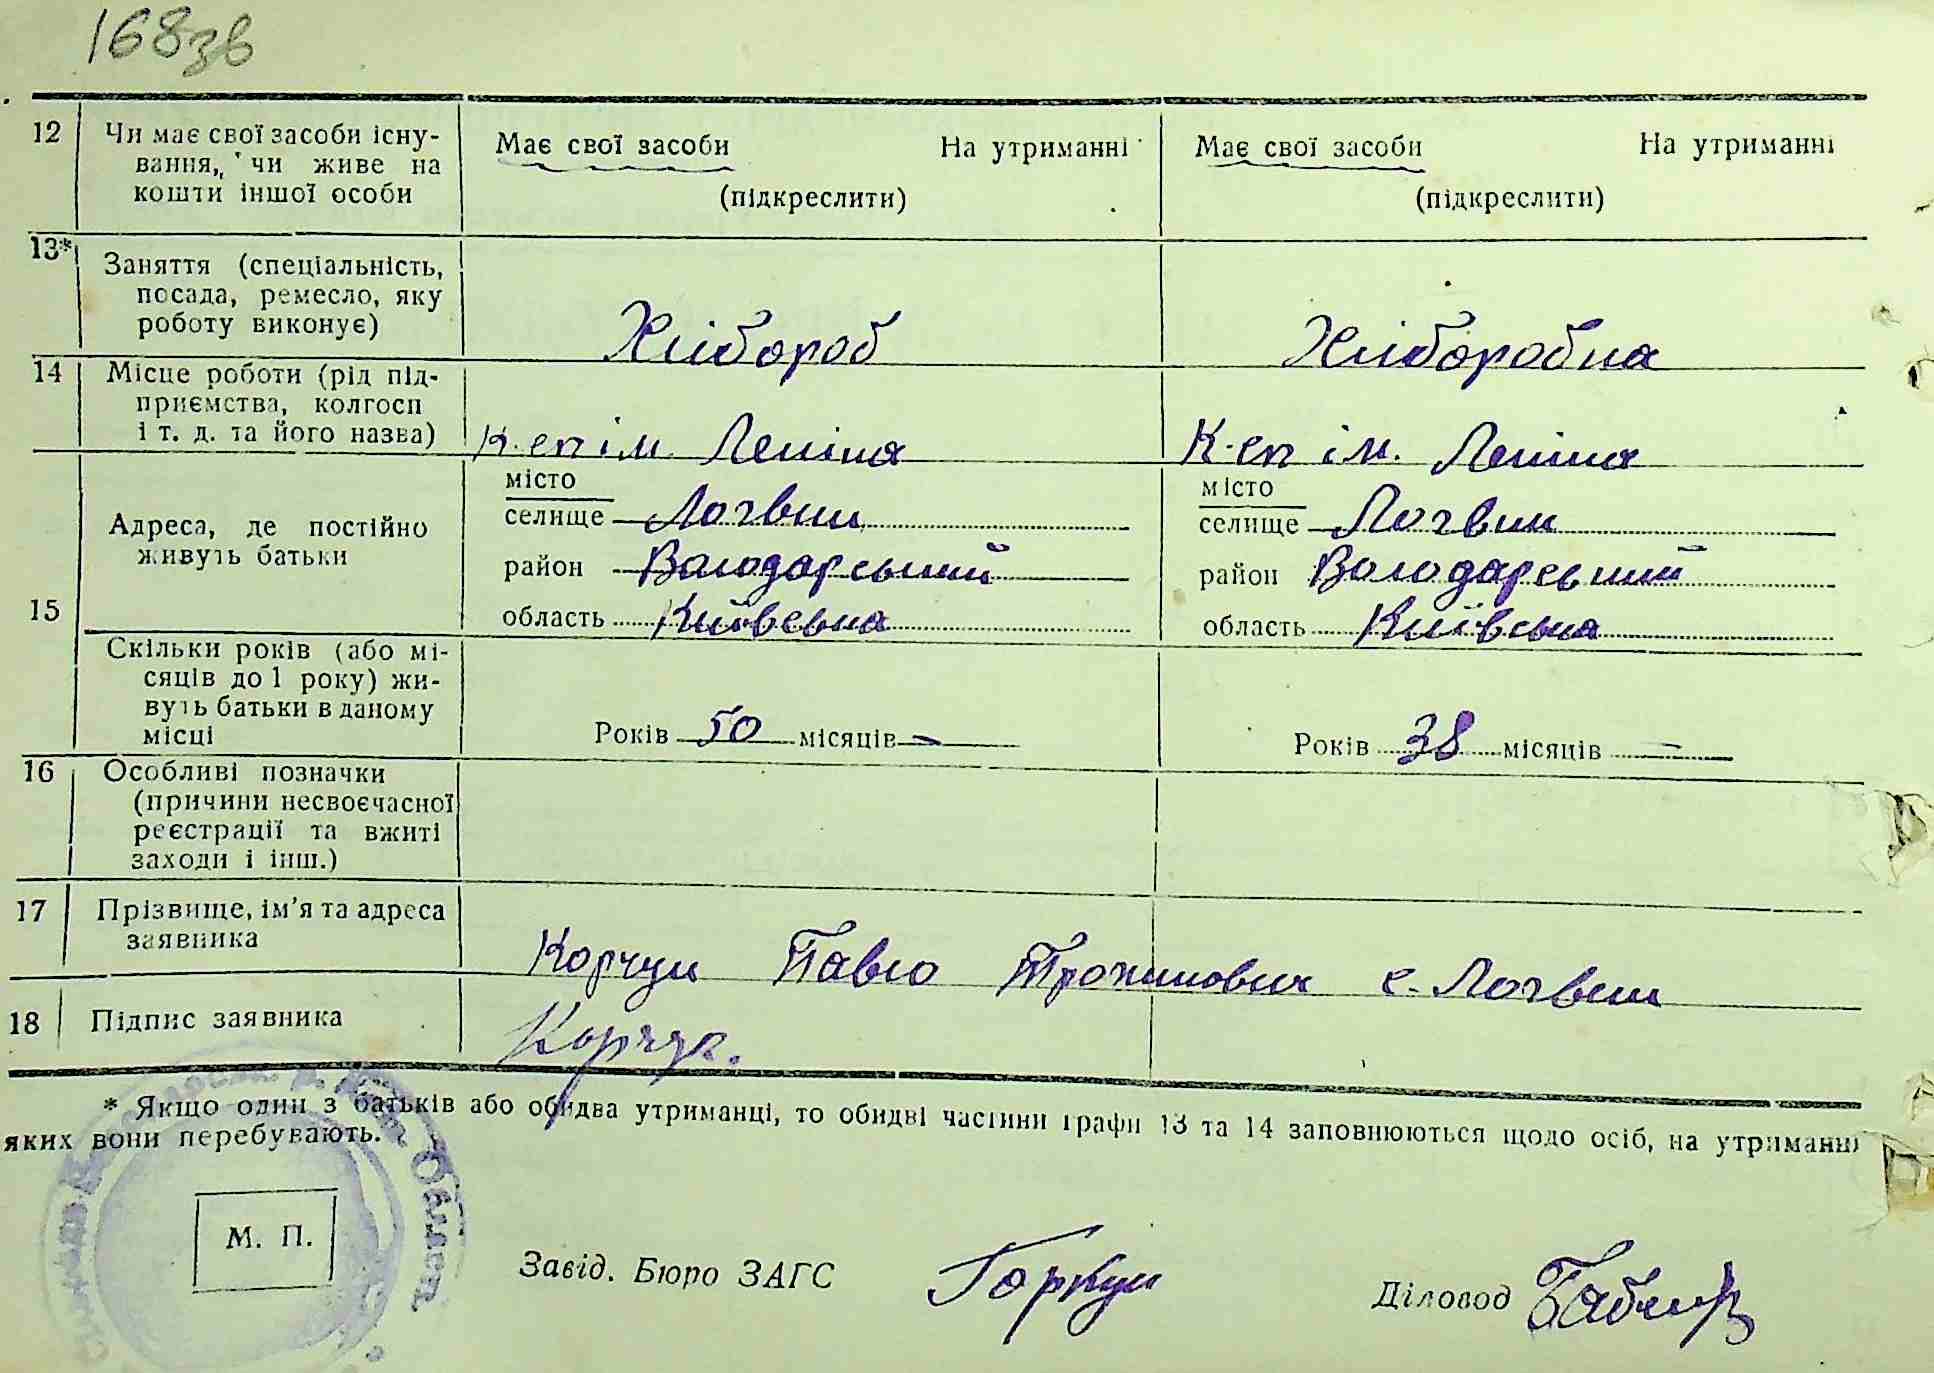 168зв
12 Чи має свої засоби існу-
вання, чи живе на
кошти іншої особи
Має свої засоби На утриманні
(підкреслити)
Має свої засоби На утриманні
(підкреслити)
13* Заняття (спеціальність,
посада, ремесло, яку
роботу виконує)
Хлібороб
Хліборобка
14 Місце роботи (рід під-
приємства, колгосп
і т. д. та його назва)
К-сп ім. Леніна
К-сп ім. Леніна
15 Адреса, де постійно
живуть батьки
місто
селище Логвин
район Володарський
область Київська
місто
селище Логвин
район Володарський
область Київська
Скільки років (або мі-
сяців до 1 року) жи-
вуть батьки в даному
місці
Років 50 місяців -
Років 38 місяців -
16 Особливі позначки
(причини несвоєчасної
реєстрації та вжиті
заходи і інш.)
17 Прізвище, ім'я та адреса
заявника
Павло с. Логвин
18 Підпис заявника
* Якщо один з батьків або обидва утриманці, то обидві частини графи 13 та 14 заповнюються щодо осіб, на утриманні
яких вони перебувають.
М. П.
Завід. Бюро ЗАГС
Діловод